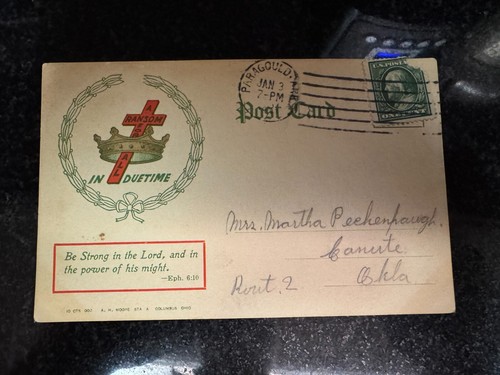 PARAGOULD, ARK.
JAN 3
7-PM
U.S. POSTAGE
Post Card
A
RANSOM
FOR
ALL
IN DUETIME
Mrs. Martha Peckenpaugh.
Canute
Okla
Rout. 2
Be Strong in the Lord, and in
the power of his might.
—Eph. 6:10
COLUMBUS OHIO